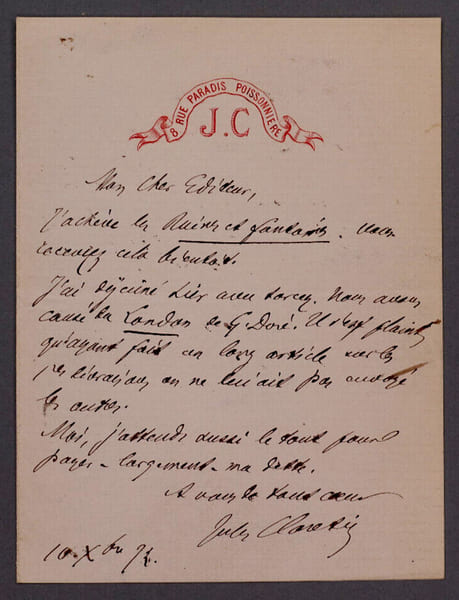 8 RUE PARADIS POISSONNIÈRE
J.C
Mon cher Editeur,
J'achève les Ruines et fantômes. Vous
recevrez cela bientôt.
J'ai déjeuné hier avec Sarcey. Nous avons
causé du London de G. Doré. Il s'est plaint
qu'ayant fait un long article sur les
1res livraisons on ne lui ait pas envoyé
les autres.
Moi, j'attends aussi le tout pour
payer - largement - ma dette.
A vous de tout cœur
Jules Claretie
10 Xbre 72.